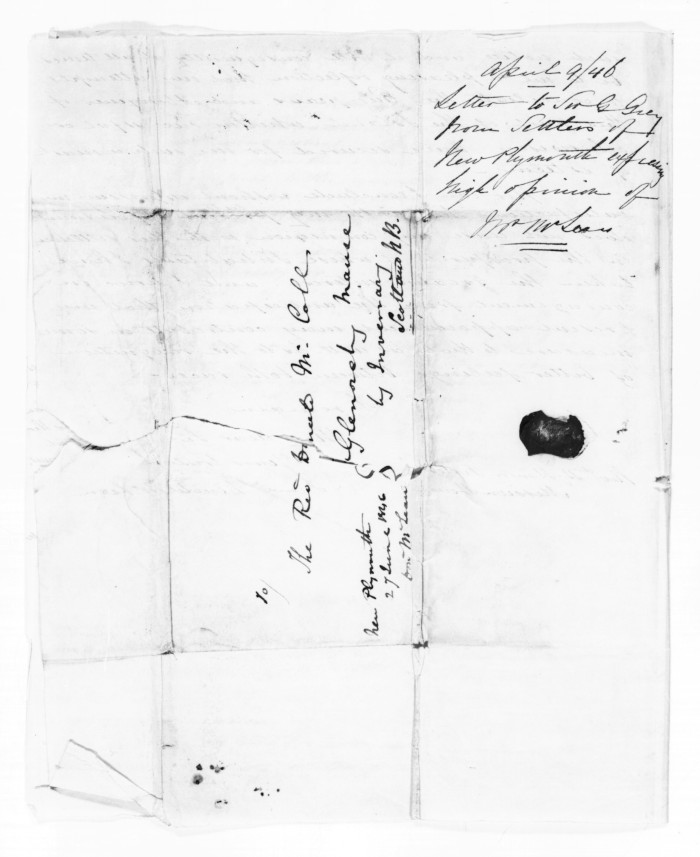 April 9/46
Letter to Sir G Grey
from Settlers of
New Plymouth expressing
high opinion of
Mr McLean
To/
The Revd McColl
Glenorchy Manse
by Inverary
Scotland N.B.
New Plymouth
27 June 1846
McLean